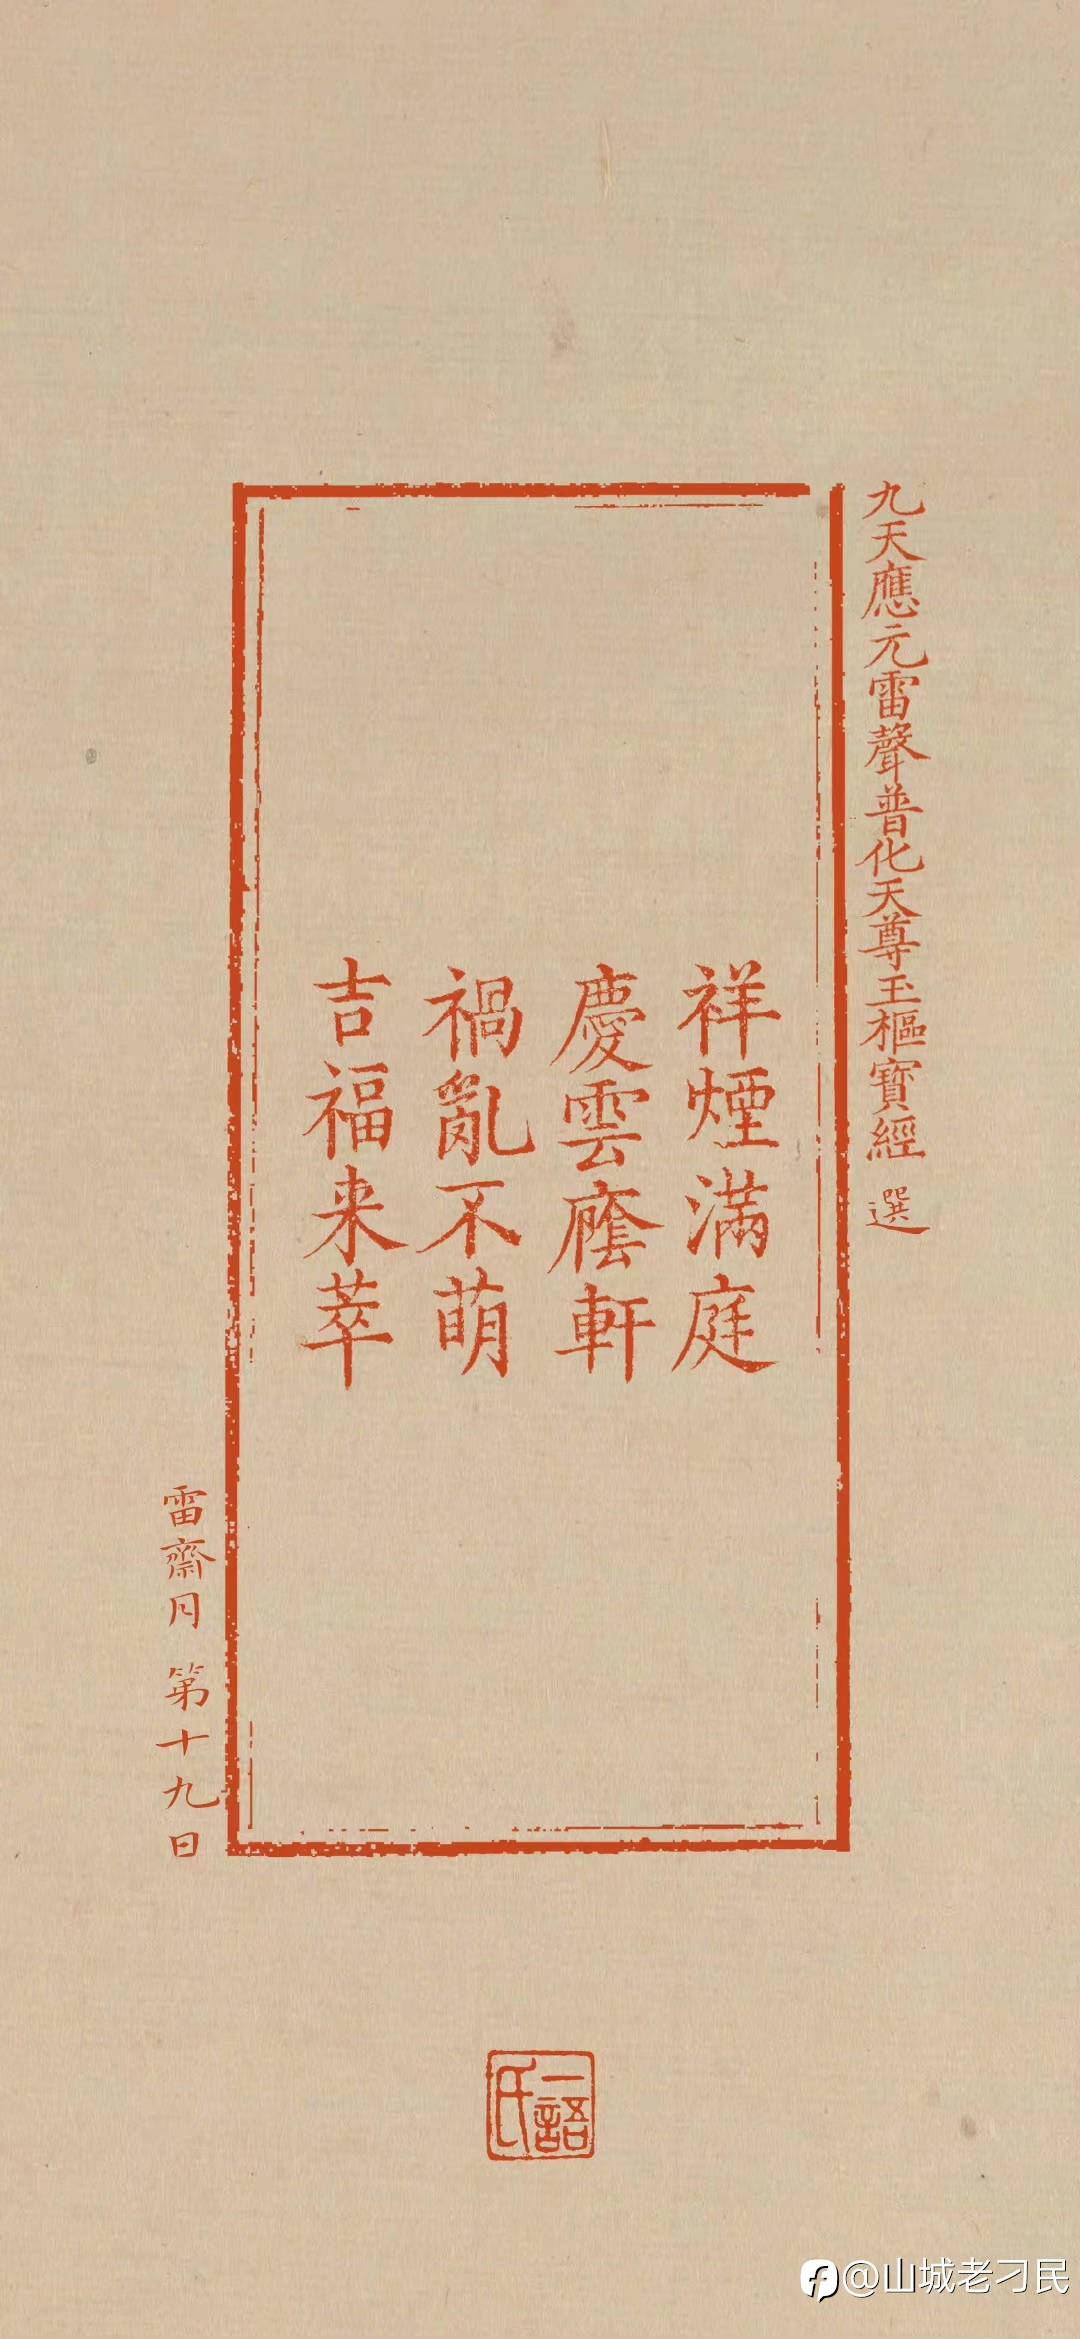 九天應元雷聲普化天尊玉樞寶經 選
祥煙滿庭
慶雲廕軒
禍亂不萌
吉福来萃
雷齋月 第十九日
一語氏
@山城老刁民